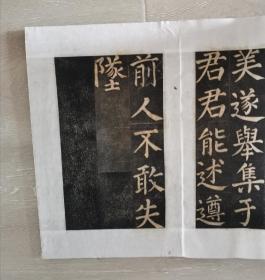 美遂舉集于
君君能述遵
前人不敢失
墜